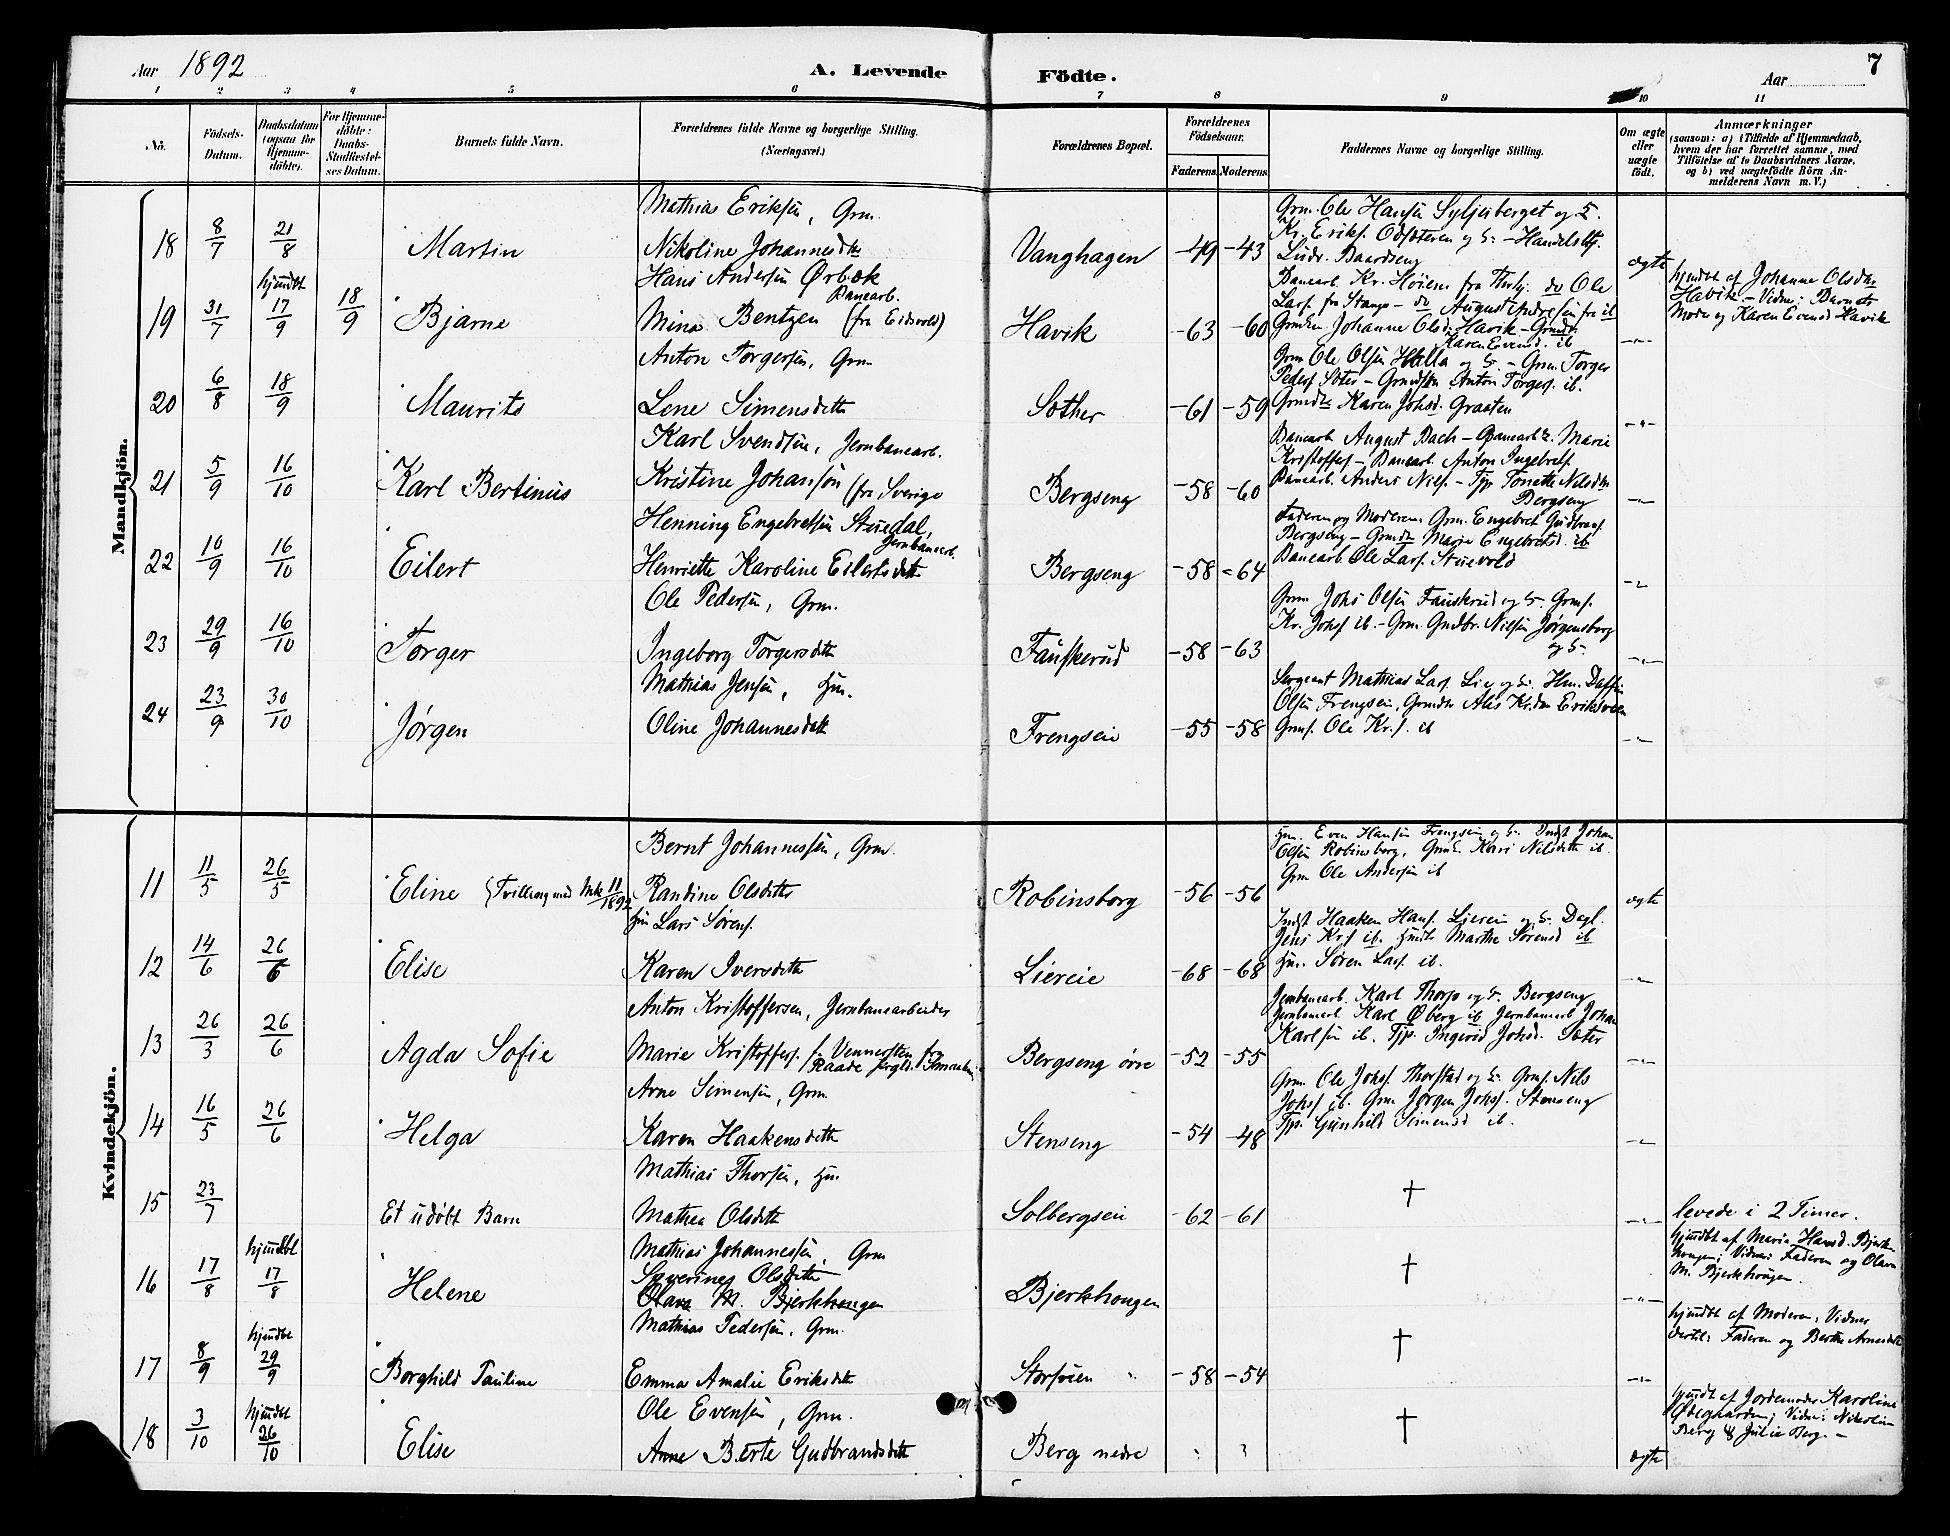 Aar 1892 A. Levende Födte. Aar 7
1 2 3 4 5 6 7 8 9 10 11
No. Födsels-Datum. Daabsdatum (ogsaa for Hjemmedöbte). For Hjemmedöbte: Daabs-Stadfæstelses Datum. Barnets fulde Navn. Forældrenes fulde Navne og borgerlige Stilling. (Næringsvei.) Forældrenes Bopæl. Forældrenes Födselsaar. Faderens Moderens Faddernes Navne og borgerlige Stilling. Om ægte eller uægte födt. Anmærkninger (saasom: a) i Tilfælde af Hjemmedaab, hvem der har forrettet samme, med Tilföielse af to Daabsvidners Navne, og b) ved uægtefödte Börn Anmelderens Navn m. V.)
Mandkjön.
Mathias Eriksen, Grm. Grm. Ole Hansen Syljuberget og H.
18 8/7 21/8 Martin Nikoline Johannesdtr Vanghagen -49 -43 Kr. Eriks. Odsæteren og H. - Handelsbtj. Ludv. Baardseng ægte
Hans Andersen Ørbæk Banearb. Banearb. Kr. Høiem fra Thrhj. do Ole
19 31/7 hjmdbt 17/9 18/9 Bjarne Mina Bentzen (fra Eidsvold) Havik -63 -60 Lars. fra Stange - do August Andresen fra ib Grmkn Johanne Olsd. Havik - Grmdtr Karen Evensd. ib -"- hjmdbt af Johanne Olsdtr Havik - Vidner: Barnets Moder og Karen Evensd Havik
Anton Torgersen, Grm Grm Ole Olsen Holla og H. - Grm. Torger
20 6/8 18/9 Maurits Lene Simensdtr Sother -61 -59 Peders. Soter - Grmdskn Anton Torgers. ib. Grmdtr Karen Johsd. Graaten -"-
Karl Svendsen, Jernbanearb. Banearb August Bach - Banearb. H. Marie
21 5/9 16/10 Karl Bertinius Kristine Johanson (fra Sverige Bergseng -58 -60 Kristoffers - Banearb. Anton Ingebrets. Banearb. Anders Nils. - Tjp Tonette Nilsdtr Bergseng -"-
Henning Engebretsen Stuedal, Jernbanearb. Faderen og Moderen. Grm. Engebret Gudbrans.
22 10/9 16/10 Eilert Henriette Karoline Eilertsdtr Bergseng -58 -64 Bergseng - Grmdtr Marie Engebretsd. ib Banearb. Ole Lars. Stuevold -"-
Ole Pedersen, Grm. Grm Johs Olsen Fauskerud og H. Grms.
23 29/9 16/10 Torger Ingeborg Torgersdtr Fauskerud -58 -63 Kr. Johs ib. - Grm. Gudbr. Nilsen Jørgensborg og H. -"-
Mathias Jensen, Hm. Sergeant Mathias Lars. Lie og H. Hm.
24 23/9 30/10 Jørgen Oline Johannesdtr Frengseie -55 -58 Olsen Frengseie, Grmdtr Eriksveen Grms. Ole Kr.s. ib -"-
Kvindekjön.
Bernt Johannessen, Grm. Hm. Even Hansen Frengseie og H. Indst Johan
11 11/5 26/5 Eline (Tvilling med Mk 11/1892 Randine Olsdtr Robinsborg -56 -56 Olsen Robinsborg, Grmk. Kari Nilsdtr ib. Grm Ole Andersen ib ægte
Hm Lars Sørens. Indst Haaken Hans. Liereie og H. Dagl.
12 14/6 26/6 Elise Karen Iversdtr Liereie -68 -68 Jens Krs ib. Hmdtr Marthe Sørensd ib Hm. Søren Lars. ib. -"-
Anton Kristoffersen, Jernbanearbeider Jernbanearb. Karl Thorp og H. Bergseng
13 26/3 26/6 Agda Sofie Marie Kristoffers. f. Vennersten Bergseng övre -52 -55 Jernbanearb Karl Øberg ib Jernbanearb Johan Karlsen ib. Tjp. Ingerid Johsd. Soter -"-
Arne Simensen, Grm. Grm. Ole Johs. Thorstad og H. Grms. Nils
14 16/5 26/6 Helga Karen Haakensdtr Stenseng -54 -48 Johss ib. Grm Jørgen Johs. Stenseng Tjp. Gunhild Simensd ib. -"-
Mathias Thorsen, Hm
15 23/7 Et udøbt Barn Mathea Olsdtr Solbergseie -62 -61 † -"- levede i 2 Timer.
Mathias Johannessen, Grm
16 17/8 hjmdbt 17/8 Helene Severine Olsdtr Olava M. Bjerkhougen Bjerkhougen † -"- hjmdbt af Marie Hansd. Bjerkhougen; Vidner Faderen og Olava M. Bjerkhougen.
Mathias Pedersen, Grm.
17 8/9 hjmdbt 29/9 Borghild Pauline Emma Amalie Eriksdtr Storsveen -58 -54 † -"- hjmdbt af Moderen; Vidner dertil: Faderen og Berthe Arnesdtr
Ole Evensen, Grm.
18 3/10 hjmdbt 26/10 Elise Anne Berte Gudbrandsdtr Berg nedre ? ? † ægte hjmdbt af Jordemoder Karoline Ødegaarden; Vidner: Nikoline Berg & Julie Berg. -